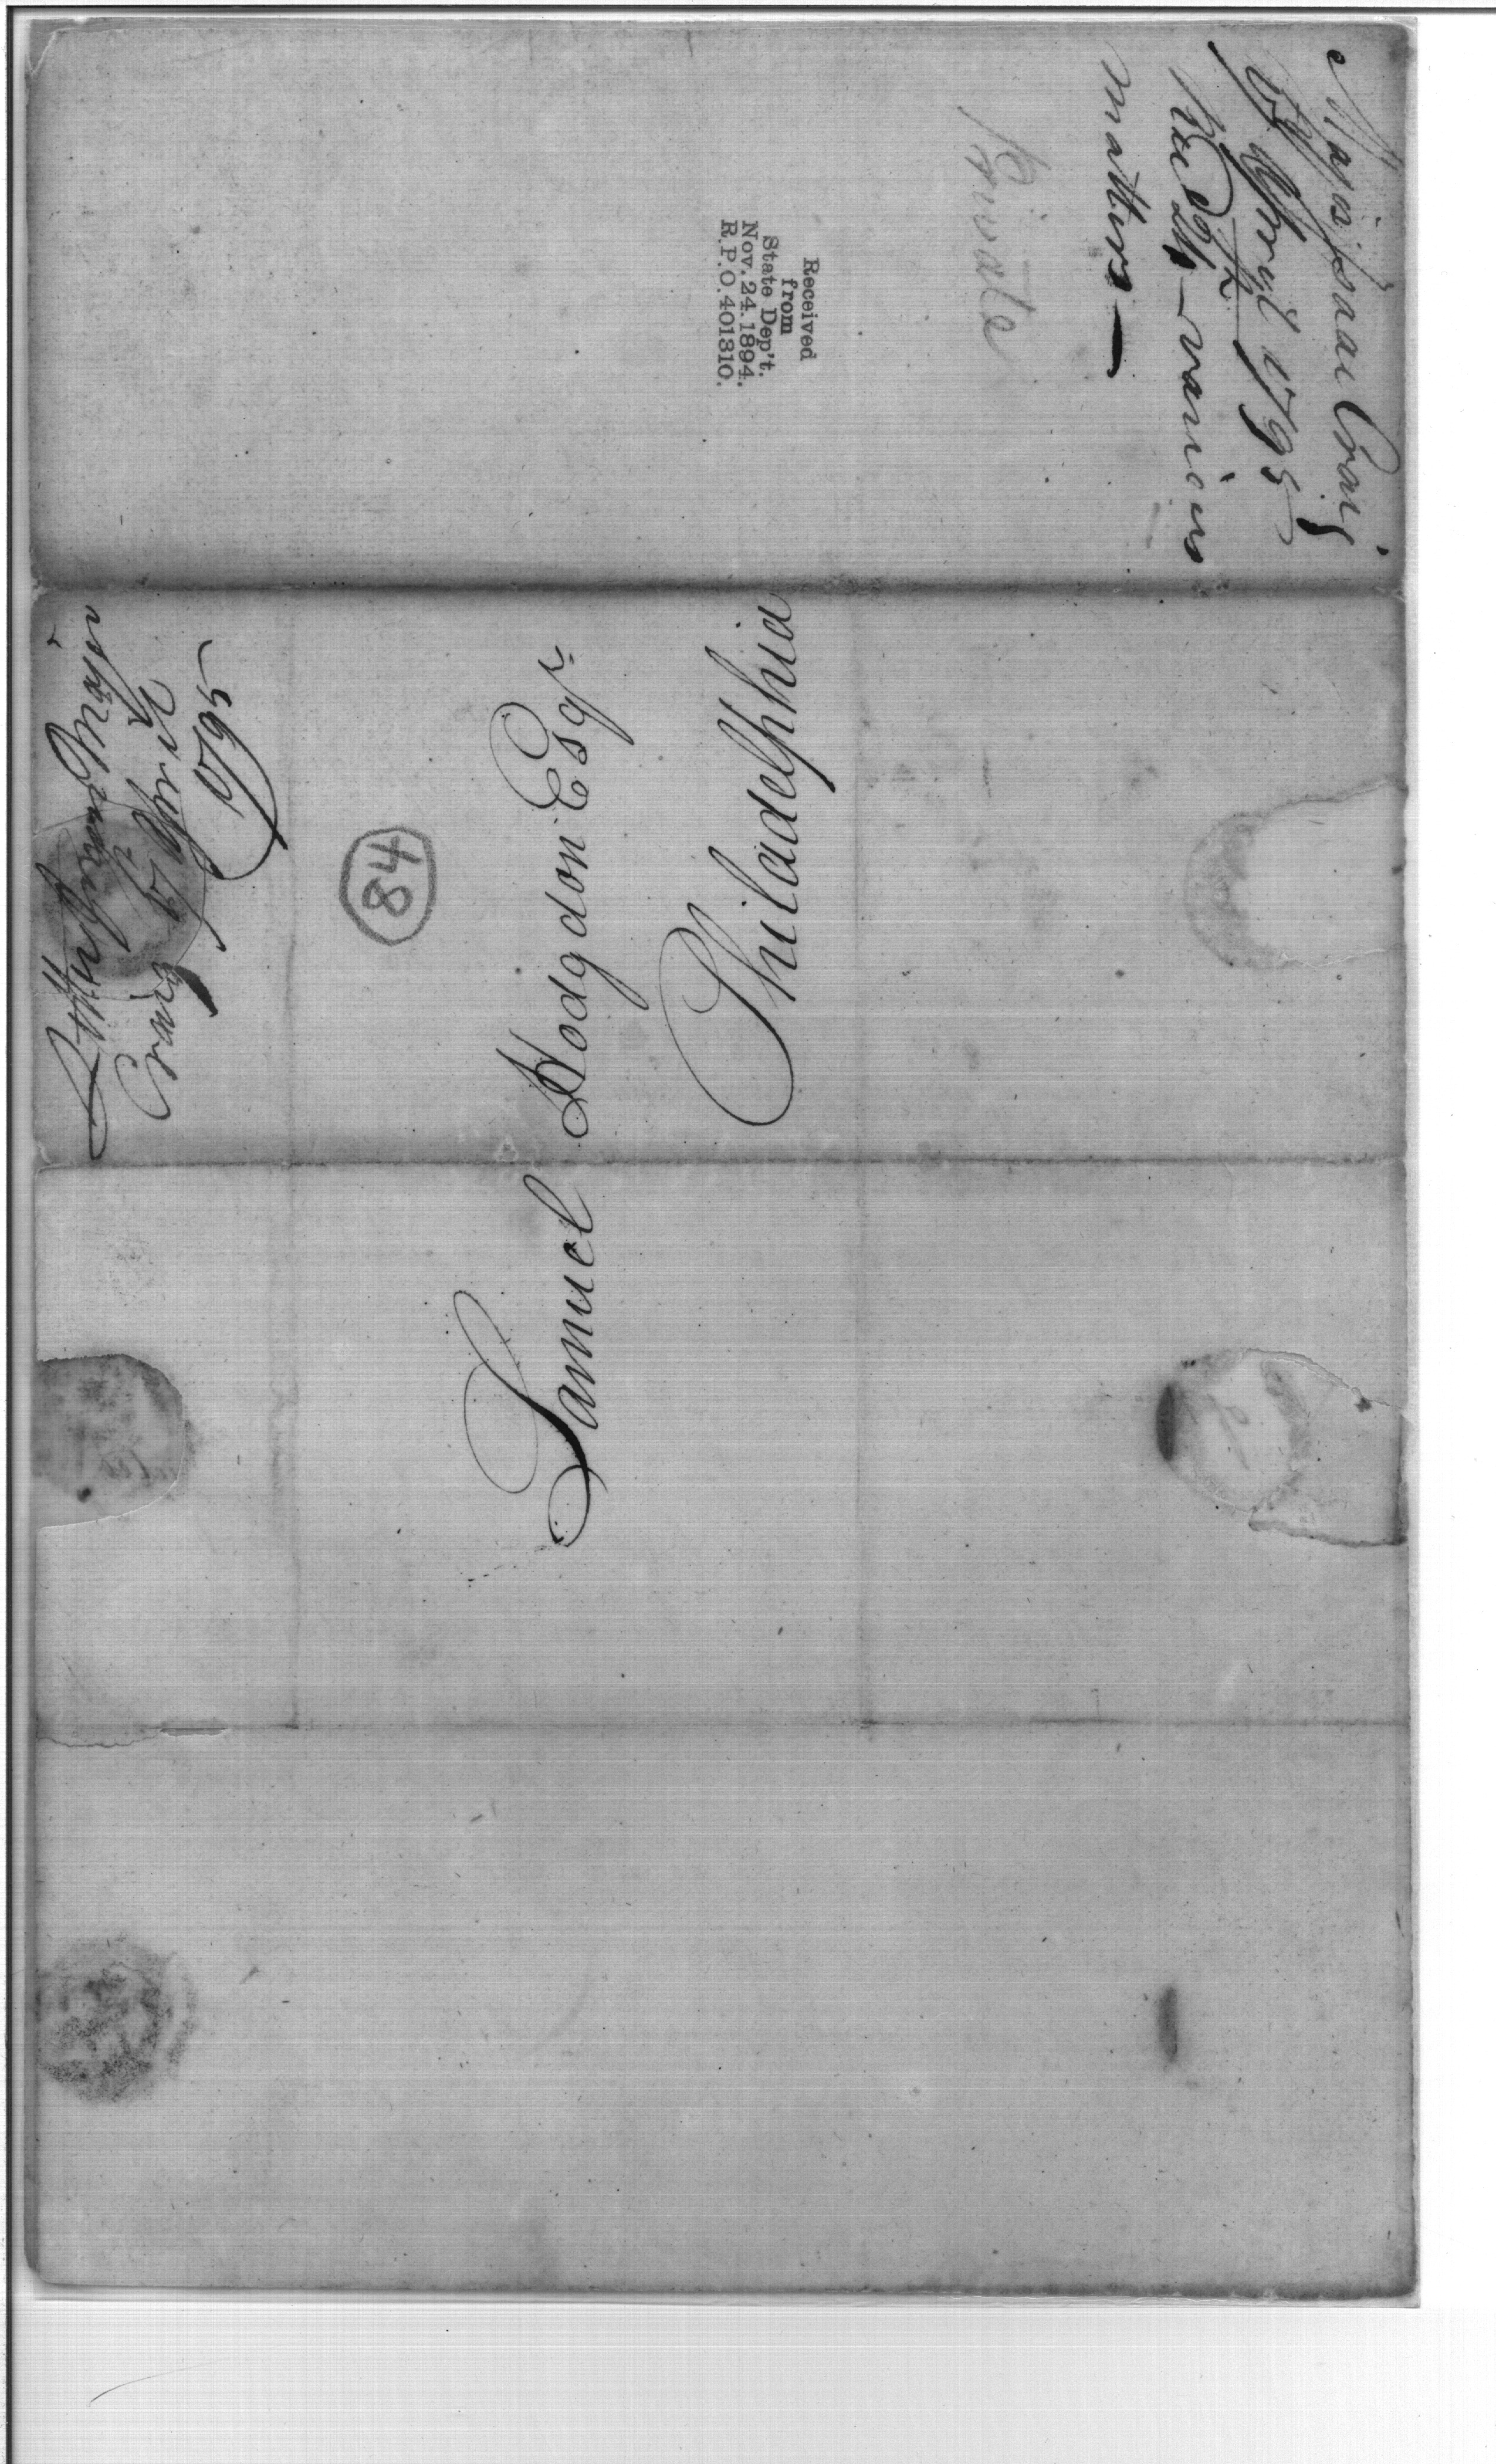 Major Isaac Craig
17th April 1795
Rec'd 24th - various
matters —
Private
Received
from
State Dep't.
Nov. 24. 1894.
R.P.O. 401310.
Letter from Major
Craig 17 April
1795
48
Samuel Hodgdon Esqr
Philadelphia